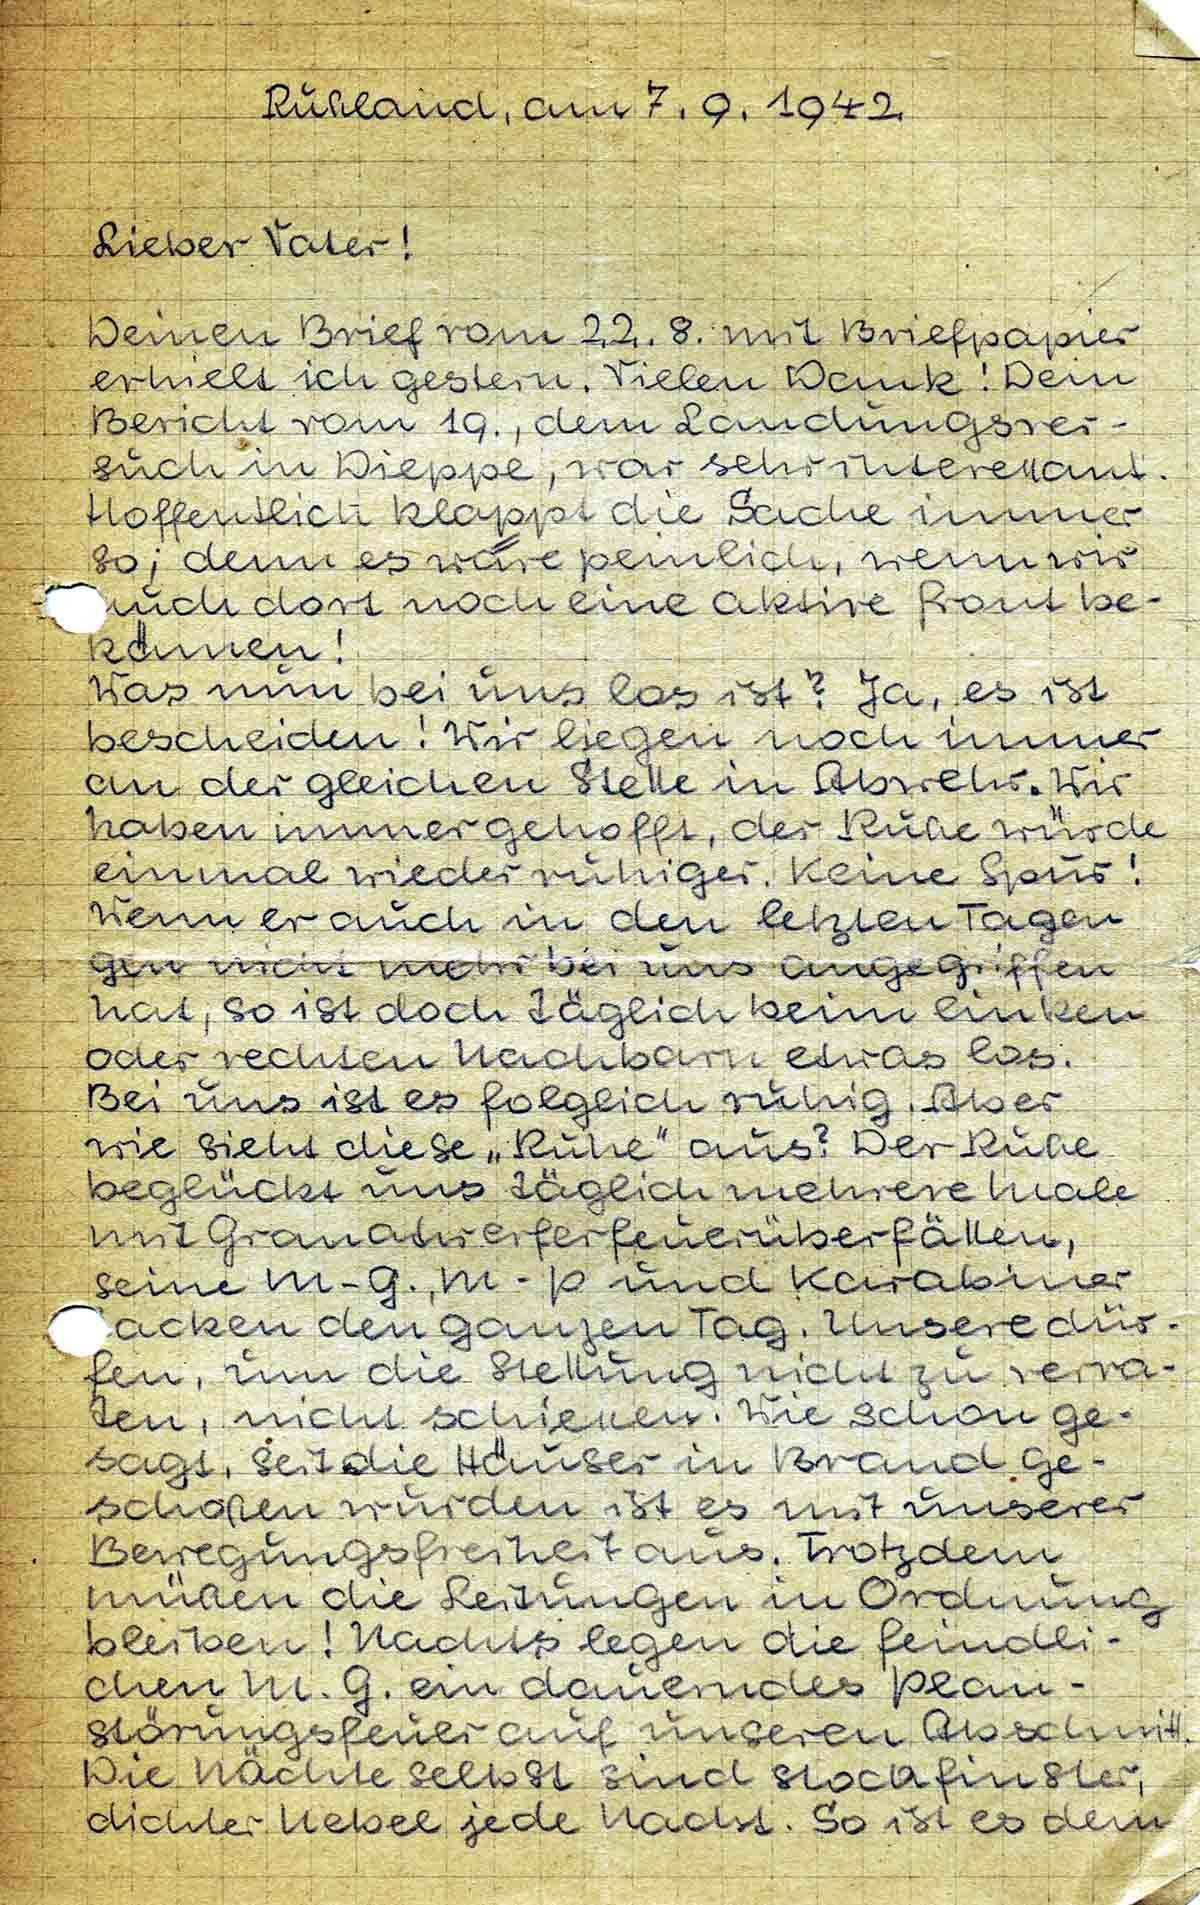 Rußland, am 7. 9. 1942.
Lieber Vater!
Deinen Brief vom 22. 8. mit Briefpapier
erhielt ich gestern. Vielen Dank! Dein
Bericht vom 19., dem Landungsver-
such in Dieppe, war sehr interessant.
Hoffentlich klappt die Sache immer
so; denn es wäre peinlich, wenn wir
auch dort noch eine aktive Front be-
kämen!
Was nun bei uns los ist? Ja, es ist
bescheiden! Wir liegen noch immer
an der gleichen Stelle in Abwehr. Wir
haben immer gehofft, der Ruße würde
einmal wieder ruhiger. Keine Spur!
Wenn er auch in den letzten Tagen
gen nicht mehr bei uns angegriffen
hat, so ist doch täglich beim linken
oder rechten Nachbarn etwas los.
Bei uns ist es folglich ruhig. Aber
wie sieht diese „Ruhe" aus? Der Ruße
beglückt uns täglich mehrere Male
mit Granatwerferfeuerüberfällen,
seine M-G., M-P und Karabiner
acken den ganzen Tag. Unsere dür-
fen, um die Stellung nicht zu verra-
ten, nicht schiessen. Wie schon ge-
sagt, seit die Häuser in Brand ge-
schoßen wurden ist es mit unserer
Bewegungsfreiheit aus. Trotzdem
müßen die Leitungen in Ordnung
bleiben! Nachts legen die feindli-
chen M. G. ein dauerndes Plan-
störungsfeuer auf unseren Abschnitt.
Die Nächte selbst sind stockfinster,
dichter Nebel jede Nacht. So ist es dem